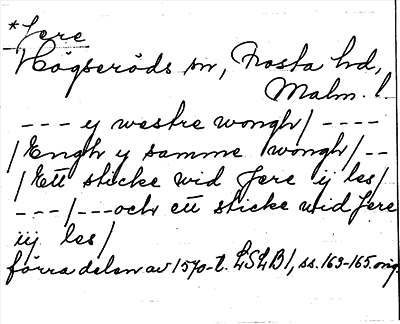 *Jere
Högseröds sn, Frosta hd,
Malm. l.
--- y westre wongh/ ----
/Engh y samme wongh/--
/Ett sticke wid Jere ij les/
---/---och ett sticke wid Jere
iij les/
förra delen av 1570-t. LSLB1, ss. 163-165. orig.